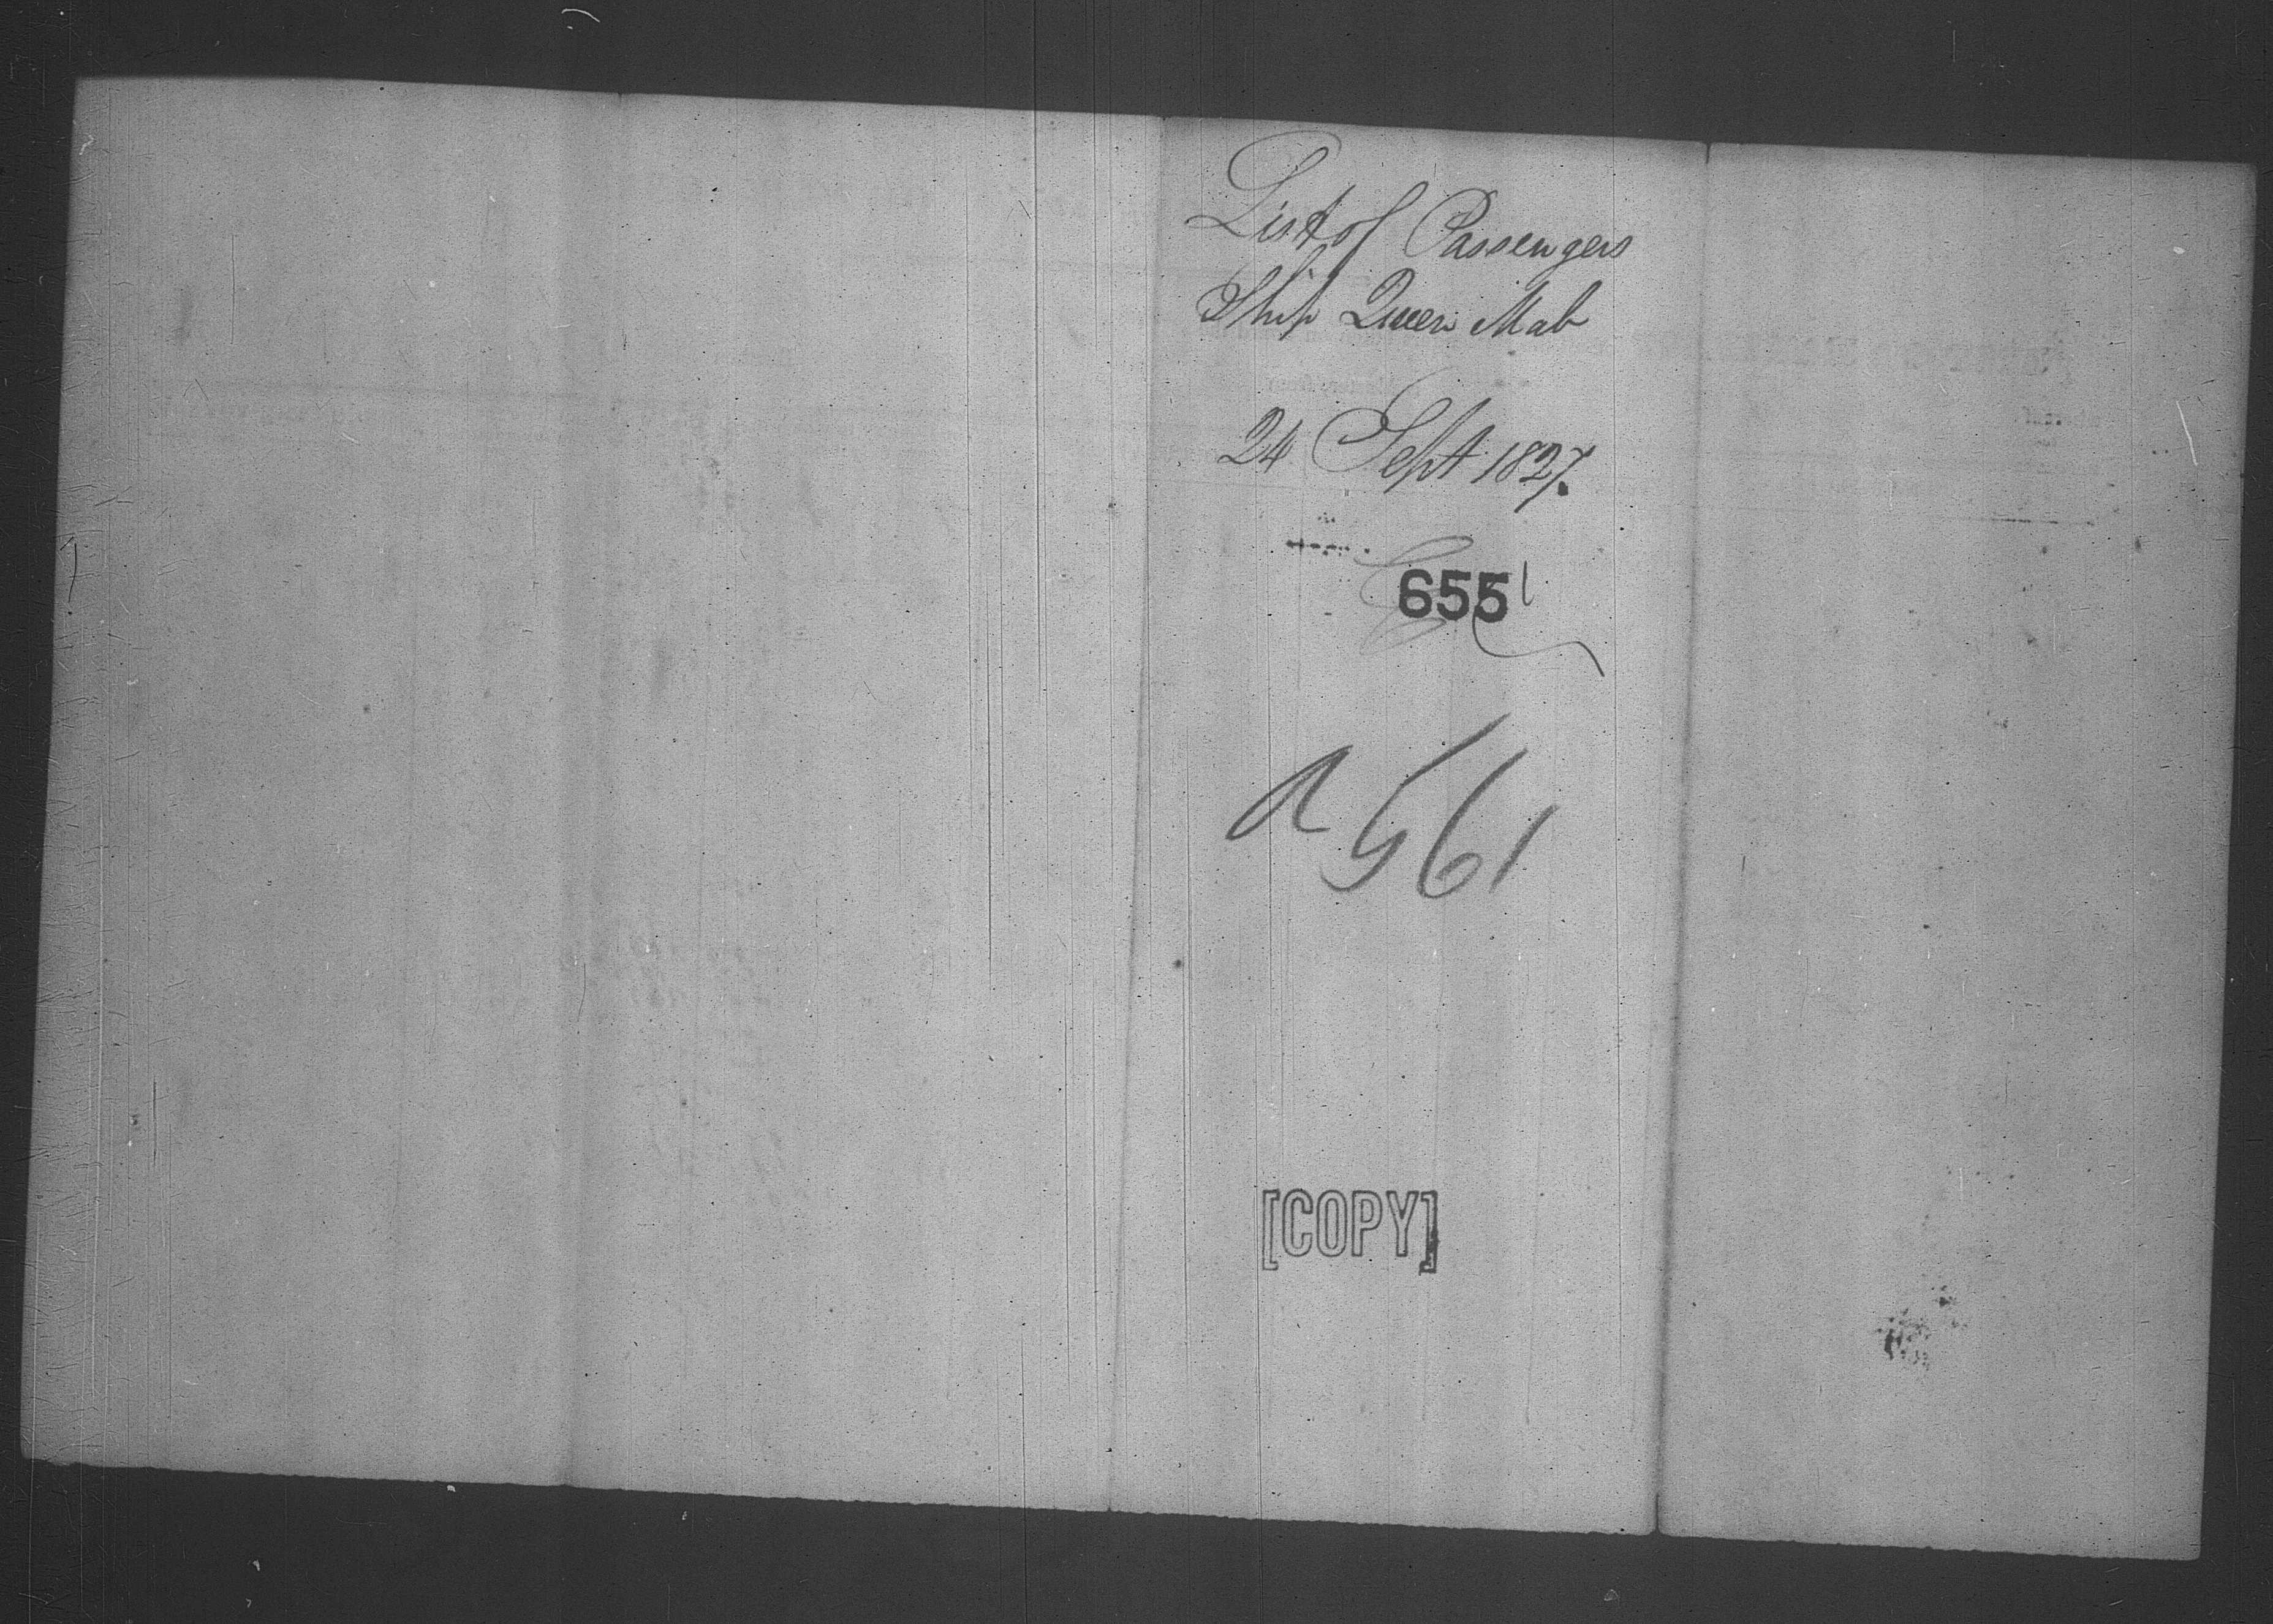 List of Passengers
Ship Queen Mab
24 Sept 1827.
655
561
[COPY]